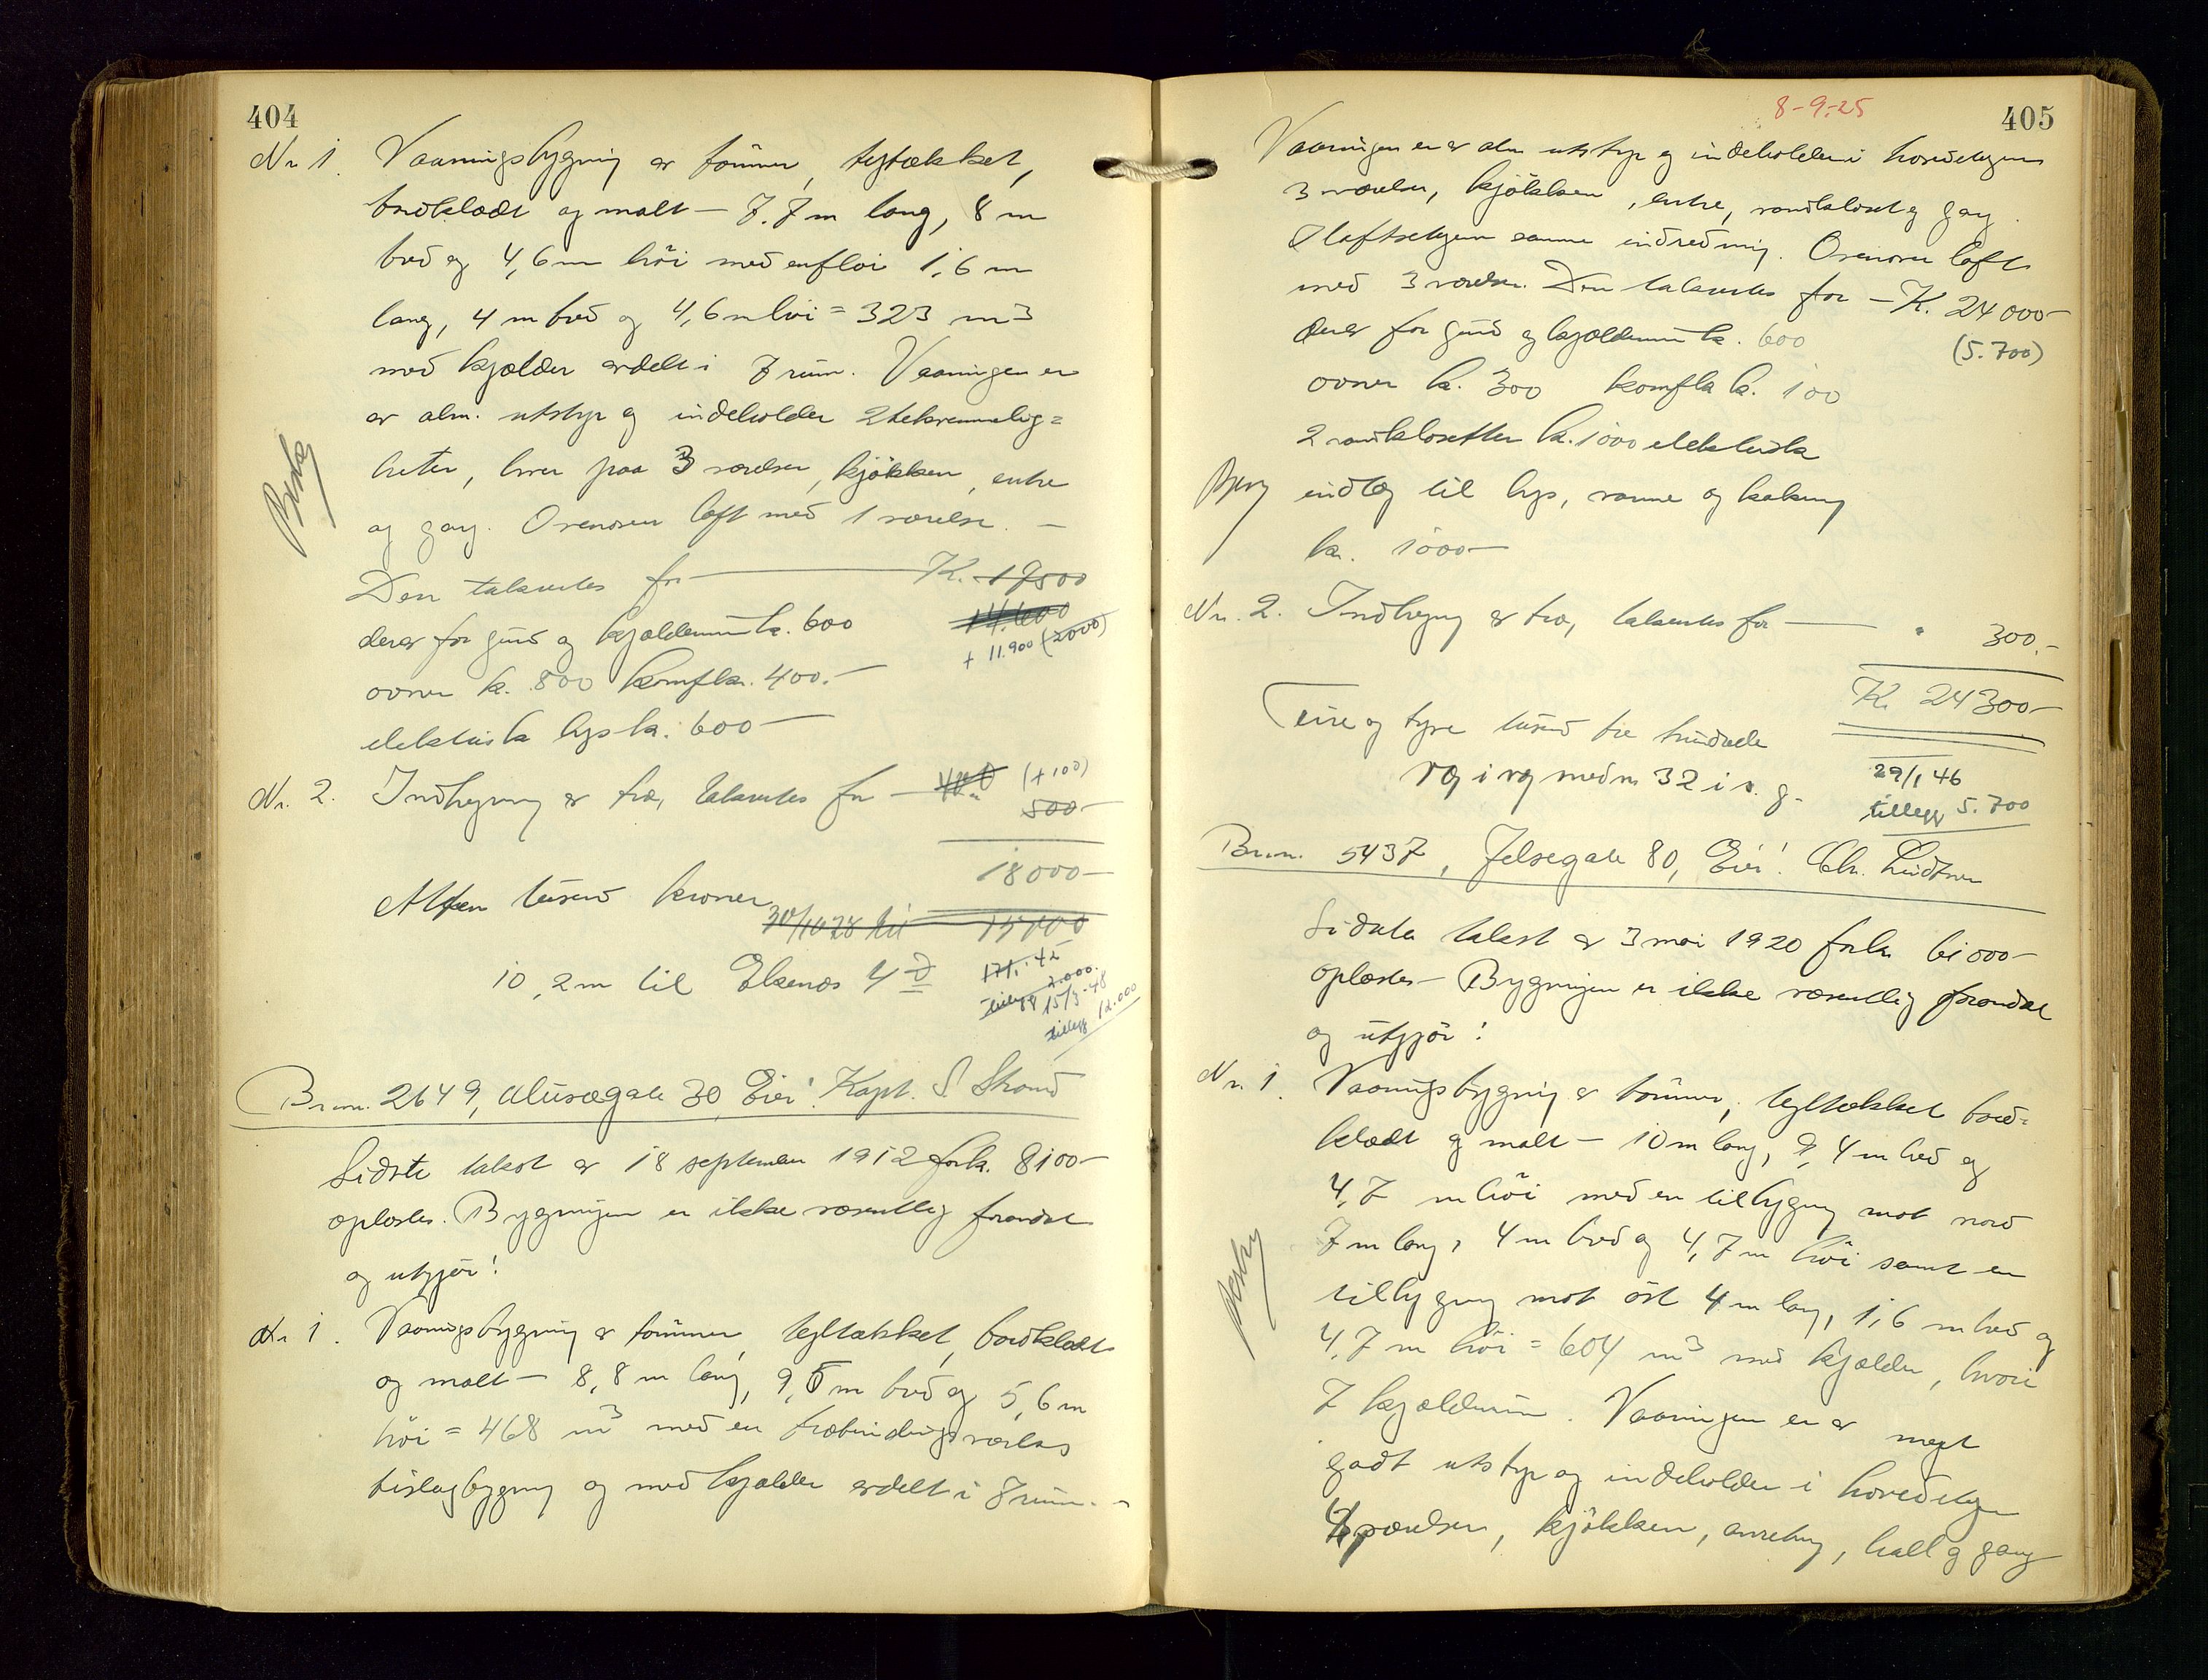 404
Nr 1. Vaaningsbygning av tømmer, tegltækket,
bordklædt og malt — 7.7 m lang, 8 m
bred og 4,6 m høi med en fløi 1,6 m
lang, 4 m bred og 4,6 m høi = 323 m3
med kjælder avdelt i 7 rum. Vaaningen er
av alm. utstyr og indeholder 2 bekvemmelig=
heter, hver paa 3 værelser, kjøkken, entre
og gang. Ovenover loft med 1 værelse. —
Den taksertes for — K. 17500
derav for grund og kjælderrum kr. 600
14.600
+ 11.900 (2000)
ovner kr. 800 komfkr. 400.—
elektrisk lys kr. 600 —
Nr. 2. Indhegning av træ, taksertes for — 400 (+100)
500 —
18000 —
Atten tusend kroner
30/10 28 til 15100
10,2 m til Ekenæs 4 d
17/1. 42
tillegg 2.000.
15/3-48
tillegg 12.000
Br.nr. 2649, Musegate 30, Eier: Kapt. S. Strand
Sidste takst av 18 september 1912 for kr. 8100 —
oplæstes. Bygningen er ikke væsentlig forandret
og utgjør:
Nr 1. Vaaningsbygning av tømmer, tegltækket, bordklædt
og malt — 8,8 m lang, 9,5 m bred og 5,6 m
høi = 468 m3 med en træbindingsverks
bislagbygning og med kjælder avdelt i 7 rum. —
8-9-25
405
Vaaningen er av alm utstyr og indeholder i hovedetagen
3 værelser, kjøkken, entre, vandkloset og gang.
I loftsetagen samme indredning. Ovenover loft
med 3 værelser. Den taksertes for — K. 24000 —
derav for grund og kjælderrum kr. 600
(5.700)
ovner kr. 300 komfkr kr. 100
2 vandklosetter kr. 1000 elektriske
indlæg til lys, varme og kokning
kr. 1000 —
Nr. 2. Indhegning av træ, taksertes for — " 300.—
K. 24300 —
Fire og tyve tusend tre hundrede
væg i væg med nr 32 i s. g.
29/1 46
tillegg 5.700
Br.nr. 5437, Jelsegate 80, Eier: Chr. Lindtner
Sidste takst av 3 mai 1920 for kr 61000 —
oplæstes — Bygningen er ikke væsentlig forandret
og utgjør:
Nr. 1. Vaaningsbygning av tømmer, tegltækket bord=
klædt og malt — 10 m lang, 9,4 m bred og
4,7 m høi med en tilbygning mot nord
7 m lang, 4 m bred og 4,7 m høi samt en
tilbygning mot øst 4 m lang, 1,6 m bred og
4,7 m høi = 604 m3 med kjælder, hvori
7 kjælderrum. Vaaningen er av meget
godt utstyr og indeholder i hovedetagen
4 værelser, kjøkken, anretning, hall og gang